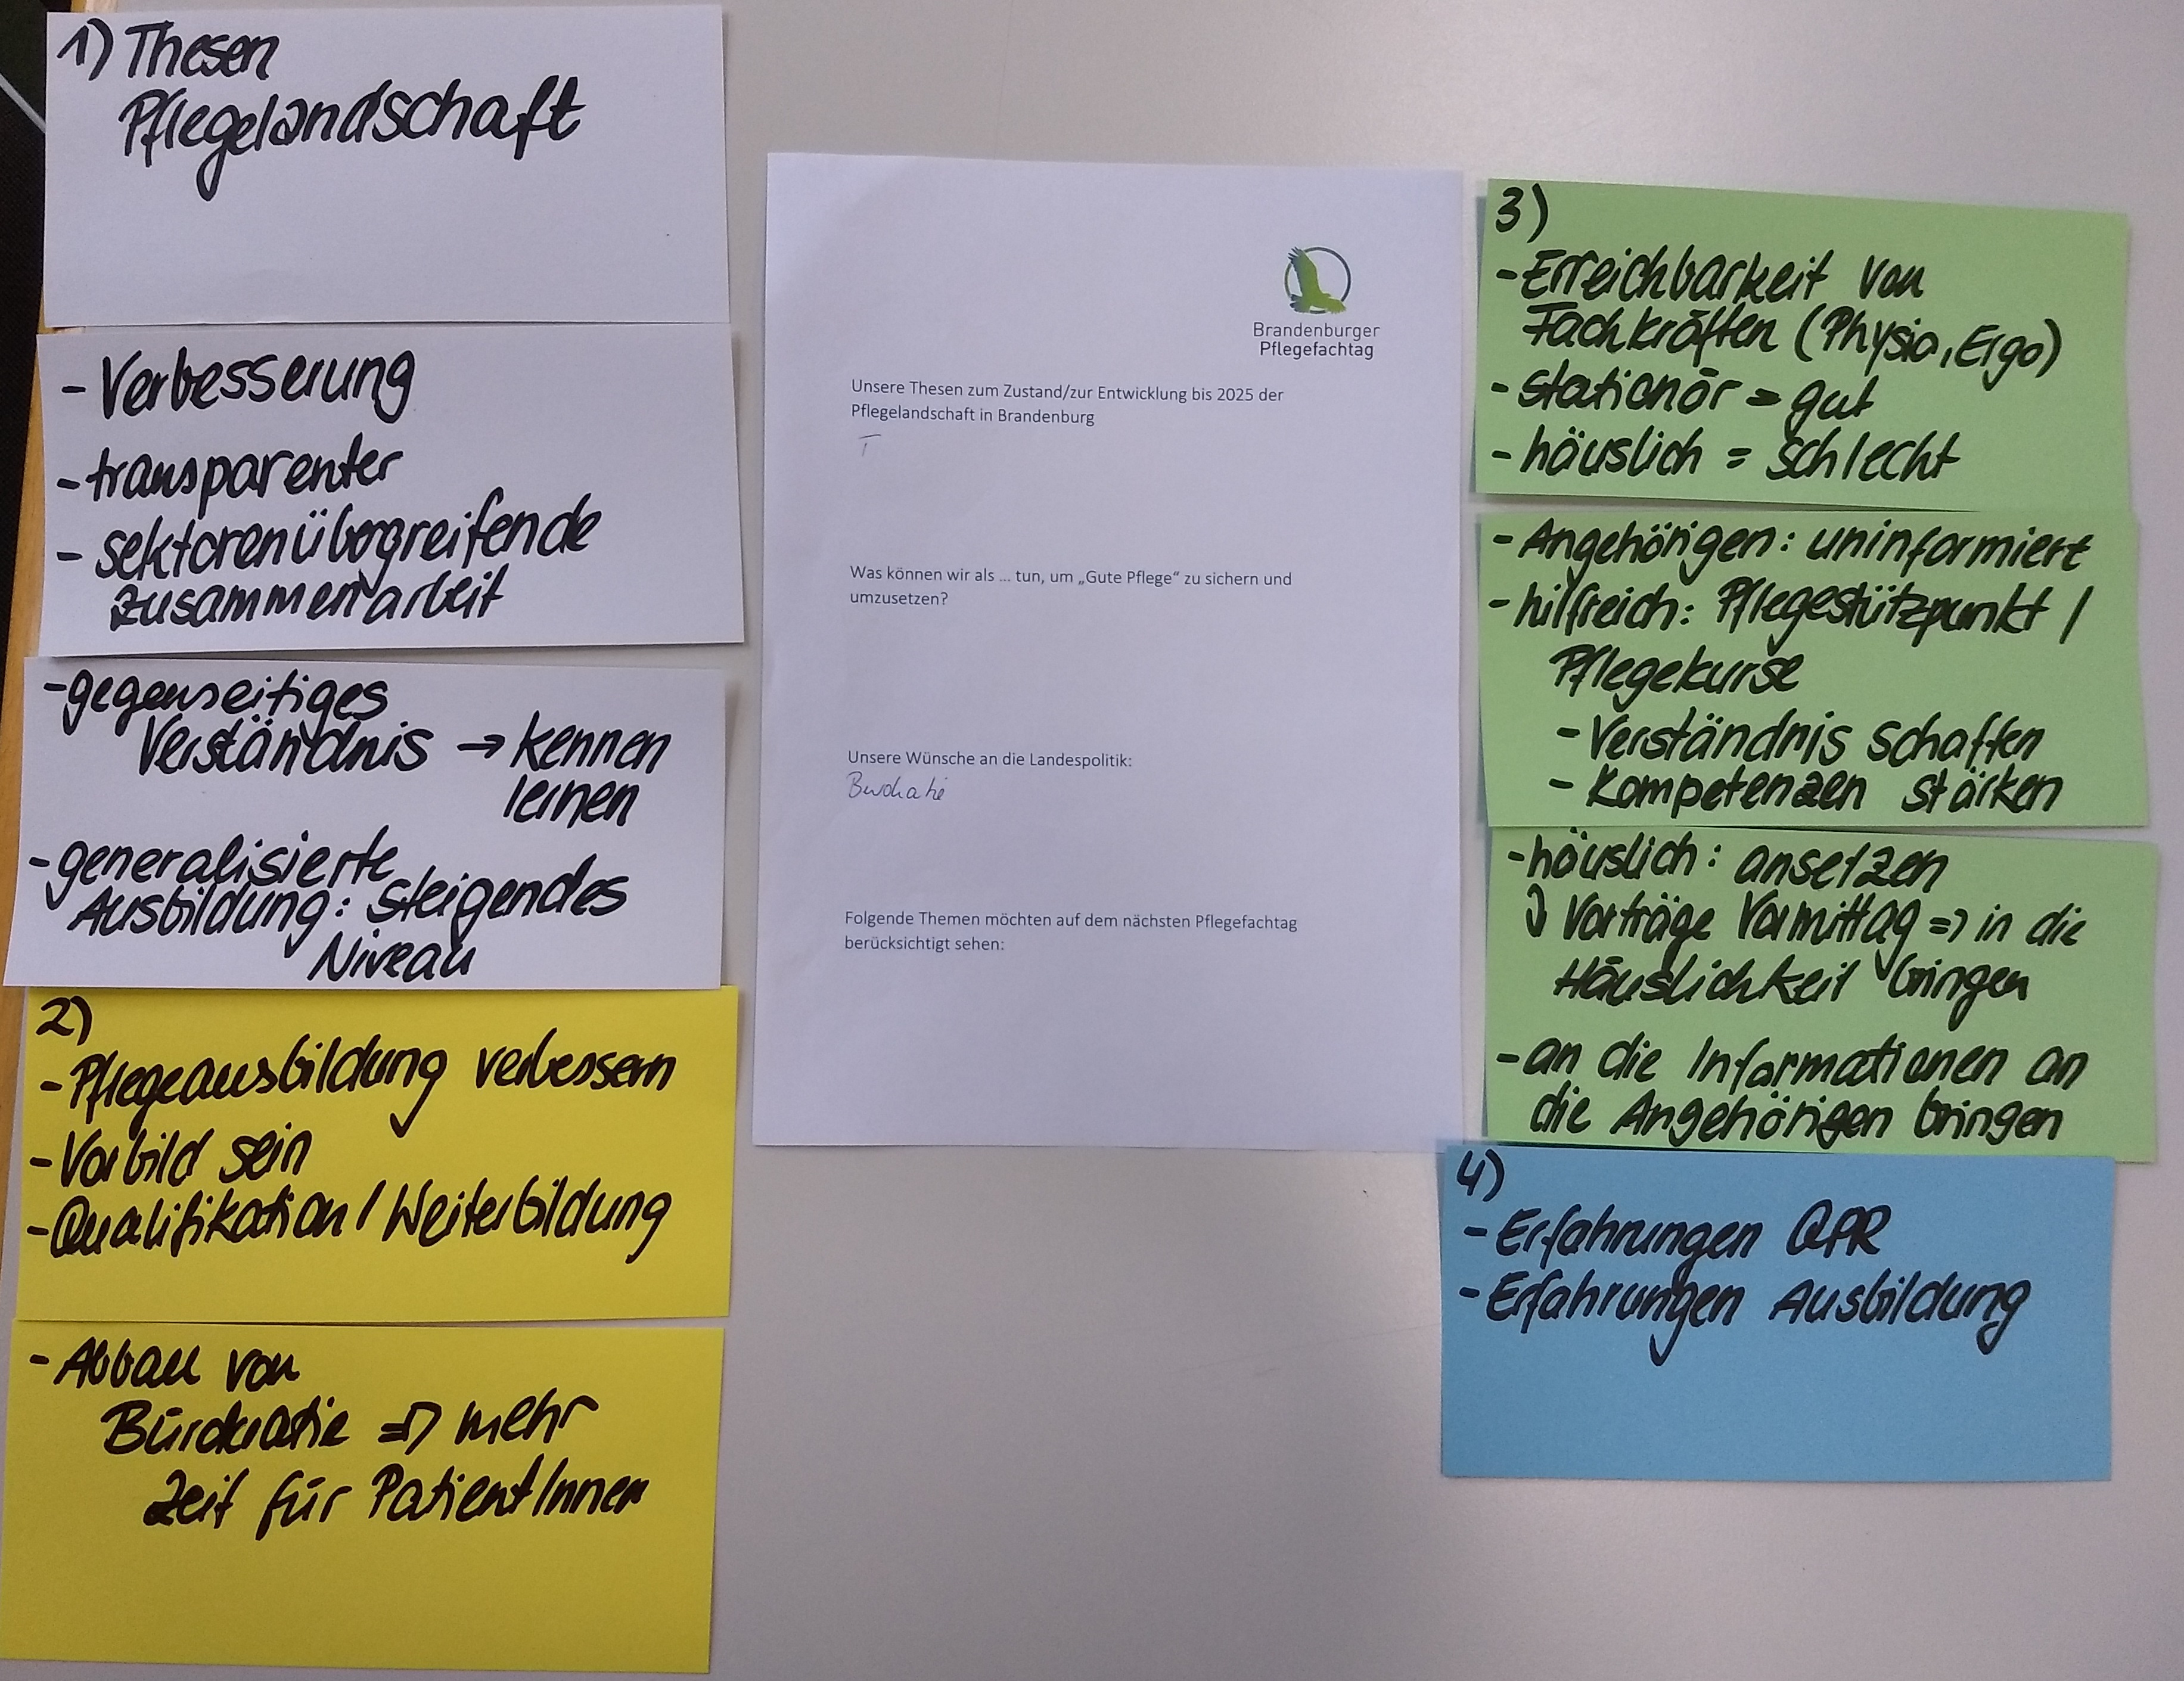 1) Thesen
Pflegelandschaft
- Verbesserung
- transparenter
- sektorenübergreifende
zusammenarbeit
- gegenseitiges
Verständnis → kennen
lernen
- generalisierte
Ausbildung: steigendes
Niveau
2)
- Pflegeausbildung verbessern
- Vorbild sein
- Qualifikation / Weiterbildung
- Abbau von
Bürokratie => mehr
Zeit für PatientInnen
Brandenburger
Pflegefachtag
Unsere Thesen zum Zustand/zur Entwicklung bis 2025 der
Pflegelandschaft in Brandenburg
T
Was können wir als ... tun, um „Gute Pflege“ zu sichern und
umzusetzen?
Unsere Wünsche an die Landespolitik:
Folgende Themen möchten auf dem nächsten Pflegefachtag
berücksichtigt sehen:
3)
- Erreichbarkeit von
Fachkräften (Physio, Ergo)
- stationär = gut
- häuslich = schlecht
- Angehörigen: uninformiert
- hilfreich: Pflegestützpunkt /
Pflegekurse
- Verständnis schaffen
- Kompetenzen stärken
- häuslich: ansetzen
Vorträge Vormittag => in die
Häuslichkeit bringen
- an die Informationen an
die Angehörigen bringen
4)
- Erfahrungen QPR
- Erfahrungen Ausbildung